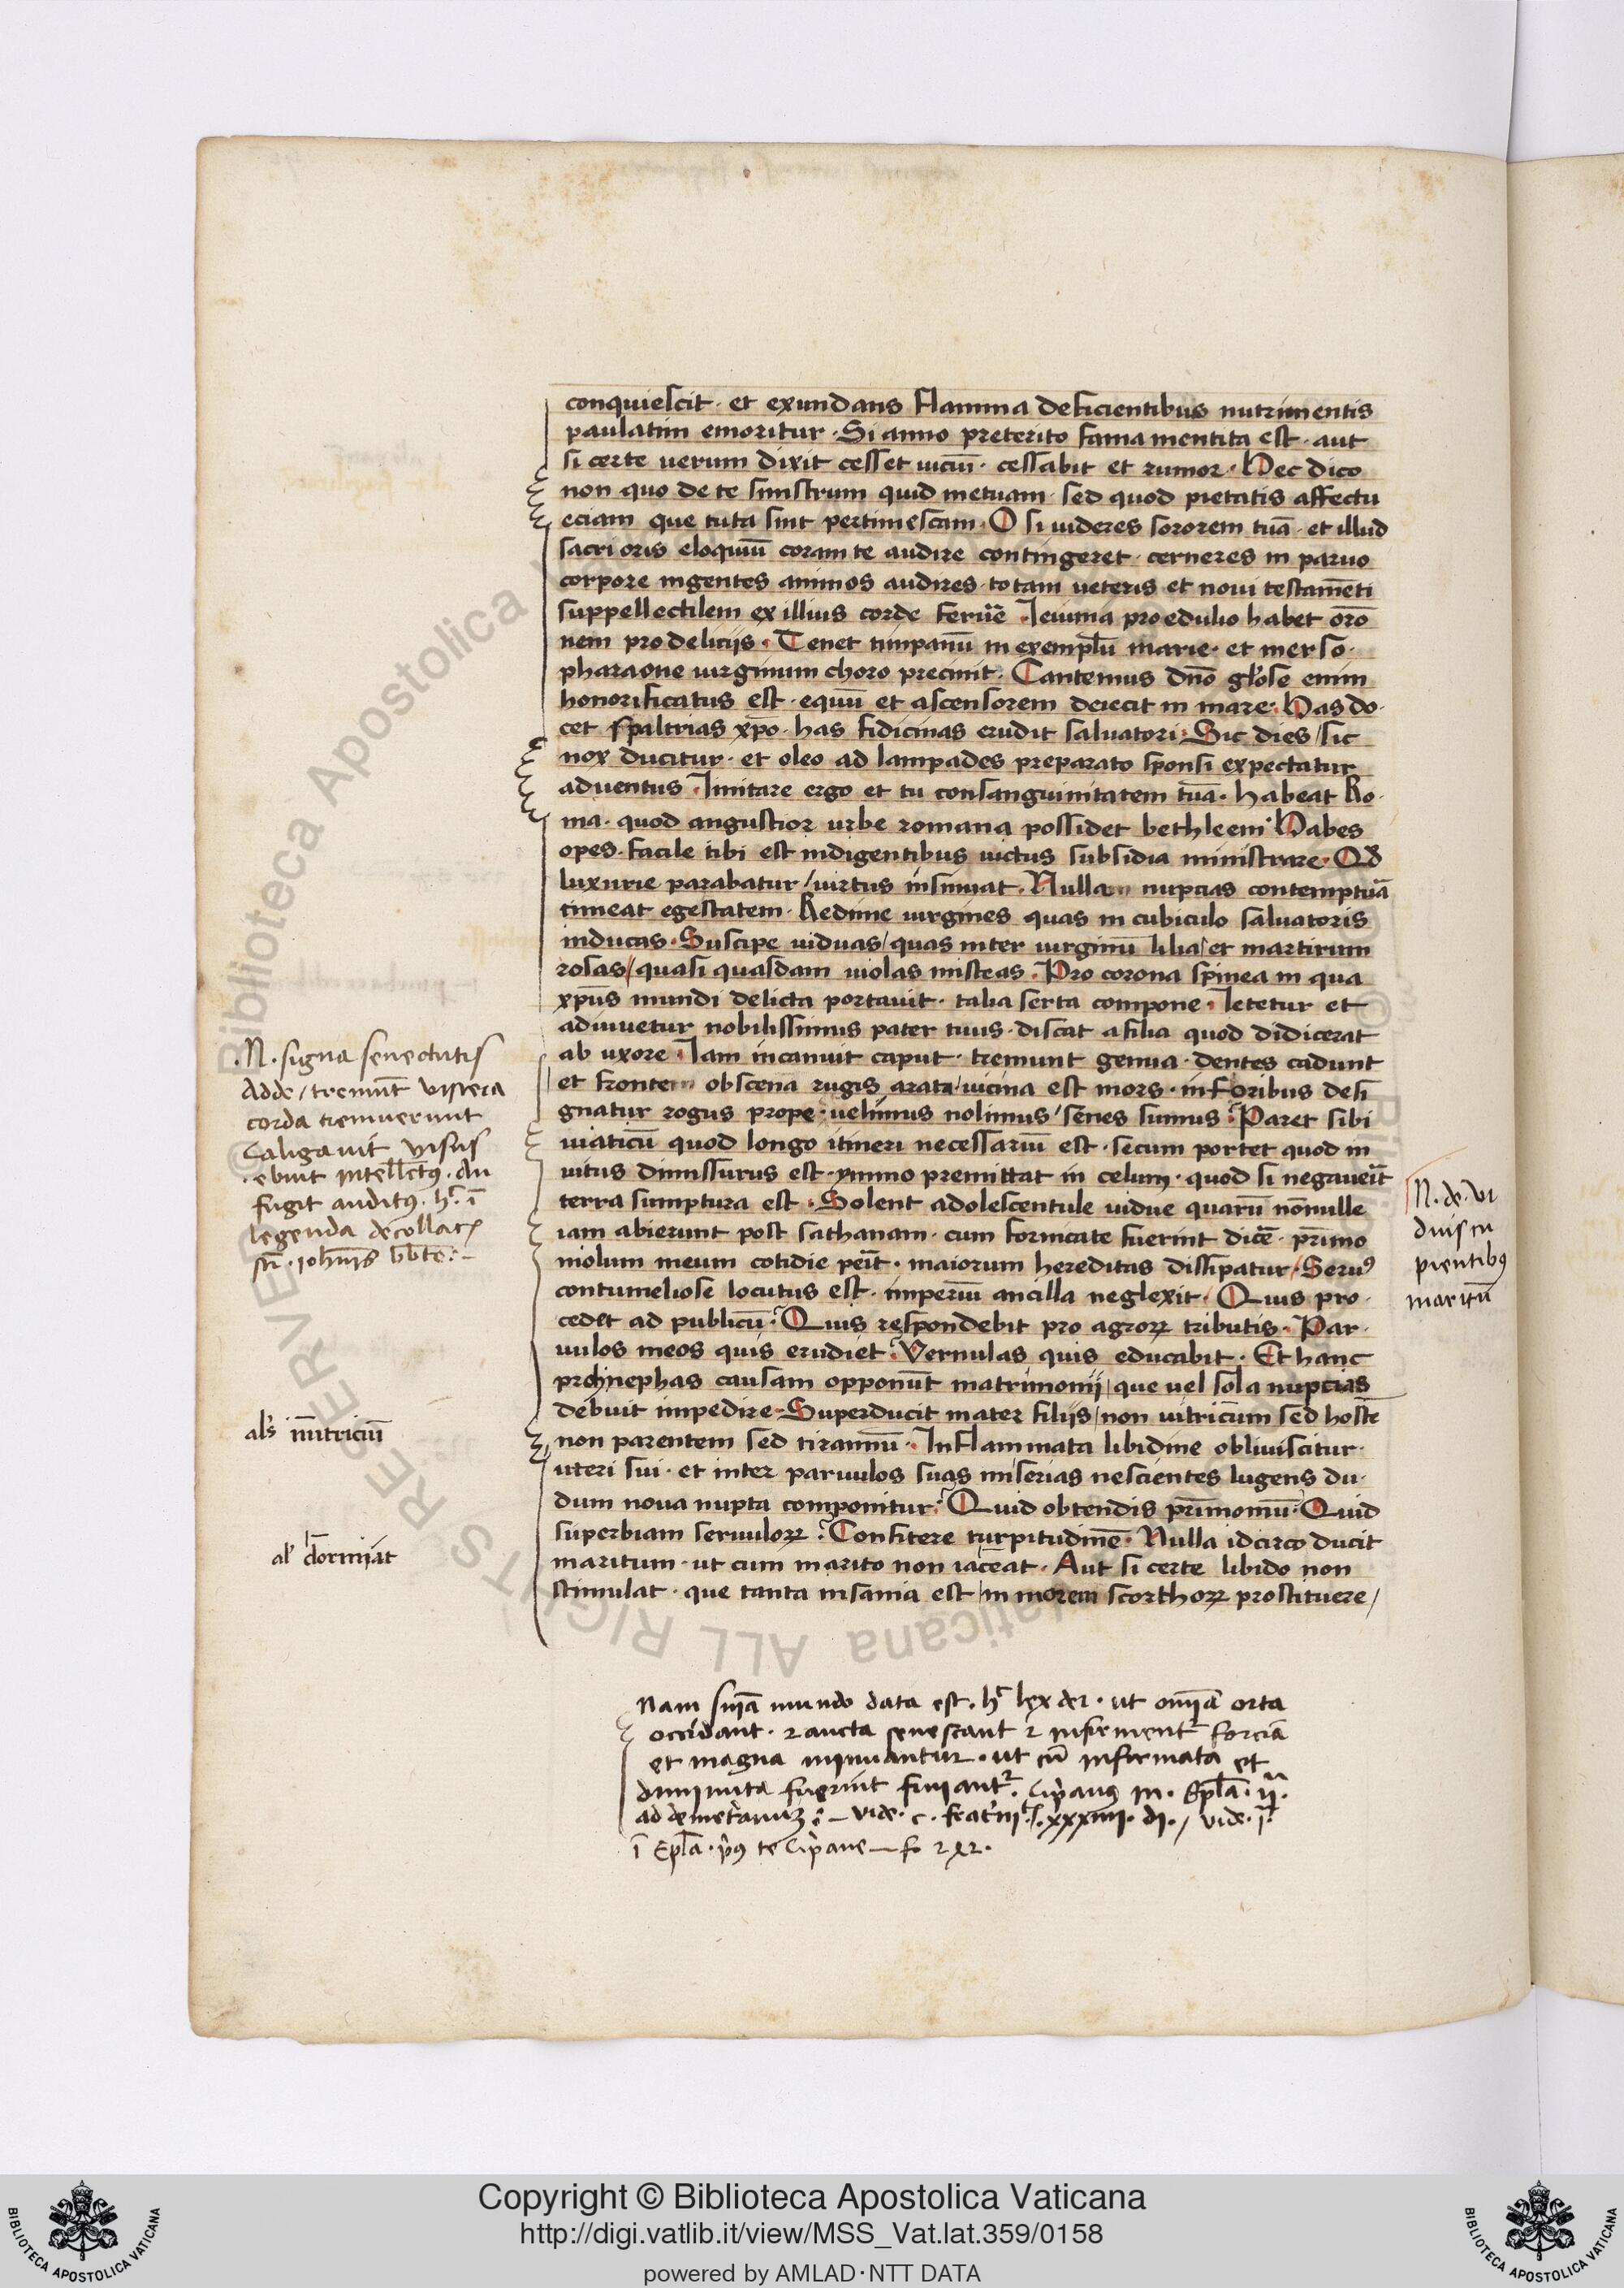 conquiescit · et exundans flamma deficientibus nutrimentis
paulatim emoritur · Si anno preterito fama mentita est · aut
si certe uerum dixit cesset uiciū · cessabit et rumor · Hec dico
non quo de te sinistrum quid metuam · sed quod pietatis affectu
eciam que tuta sint pertimescam · O si uideres sororem tuā · et illud
sacri oris eloquiū coram te audire contingeret · cerneres in paruo
corpore ingentes animos audires · totam ueteris et noui testamēti
suppellectilem ex illius corde feruē · Ieiunia pro edulio habet orō
nem pro delicijs · Tenet timpanū in exemplū marie · et merso ·
pharaone uirginum choro precinit · Cantemus dn̄o glōse enim
honorificatus est · equū et ascensorem deiecit in mare · Has do-
cet spaltrias xp̄o · has fidicinas erudit saluatori · Sic dies / sic
nox ducitur · et oleo ad lampades preparato sponsi expectatur
aduentus · Imitare ergo et tu consanguinitatem tuā · habeat Ro-
ma · quod angustior urbe romana possidet bethleem · Habes
opes · facile tibi est indigentibus uictus subsidia ministrare · Qd̄
luxurie parabatur / uirtus insinuat · Nulla nupcias contemptuā
timeat egestatem · Redime uirgines quas in cubiculo saluatoris
inducas · Suscipe uiduas / quas inter uirginū lilia / et martirum
rosas / quasi quasdam uiolas misceas · Pro corona spinea in qua
xp̄us mundi delicta portauit · talia serta compone · letetur et
adiuuetur nobilissimus pater tuus · discat a filia quod didicerat
ab uxore · Iam incanuit caput · tremunt genua · dentes cadunt
et frontem obscena rugis arata / uicina est mors · in foribus desi
gnatur rogus prope · uelimus nolimus / senes sumus · Paret sibi
uiaticū quod longo itineri necessariū est · secum portet quod in
uitus dimissurus est · ymmo premittat in celum · quod si negauer̄it
terra sumptura est · Solent adolescentule uidue quarū nōnulle
iam abierunt post sathanam · cum fornicate fuerint dicē · pr̄imo
niolum meum cotidie perīt · maiorum hereditas dissipatur · Seruꝰ
contumeliose locutus est · imperiū ancilla neglexit · Quis pro-
cedet ad publicū · Quis respondebit pro agroꝝ tributis · Par-
uulos meos quis erudiet · Vernulas quis educabit · Et hanc
prohnephas causam opponūt matrimonij / que uel sola nupcias
debuit impedire · Superducit mater filijs / non uitricum sed hostē
non parentem sed tirannū · Inflammata libidine obliuiscitur ·
uteri sui · et inter paruulos suas miserias nescientes lugens du-
dum noua nupta componitur · Quid obtendis pr̄imoniū · Quid
superbiam seruuloꝝ · Confitere turpitudinē · Nulla idcirco ducit
maritum · ut cum marito non iaceat · Aut si certe libido non
stimulat · que tanta insania est / in morem scorthoꝝ prostituere /
.N. signa senectutis
Adde / tremūt viscera
corda tremuerunt
Caligauit visus
· ebuit intellectꝰ · Au
fugit auditꝰ · h̄ ī
legenda decollac̄
sc̄i · iohn̄is bb̄te :-
als nutriciū
al' dormiāt
N. de vi
duis cu
pientibꝰ
maritū
Nam sn̄ia mundo data est · h̄ lex dei · ut omīa orta
occidant · ⁊ aucta senescant ⁊ infirment᷑ forcia
et magna minuantur · ut cū infirmata et
diminuta fuerint finiant᷑ · Cip̄anꝰ in · Ep̄la · ij.
ad demetrianū :- vide · c · frat'nit̄ · xxxiiii · di · / vide · j.
ī Ep̄la · p̄ꝰ te Cip̄ane — fo